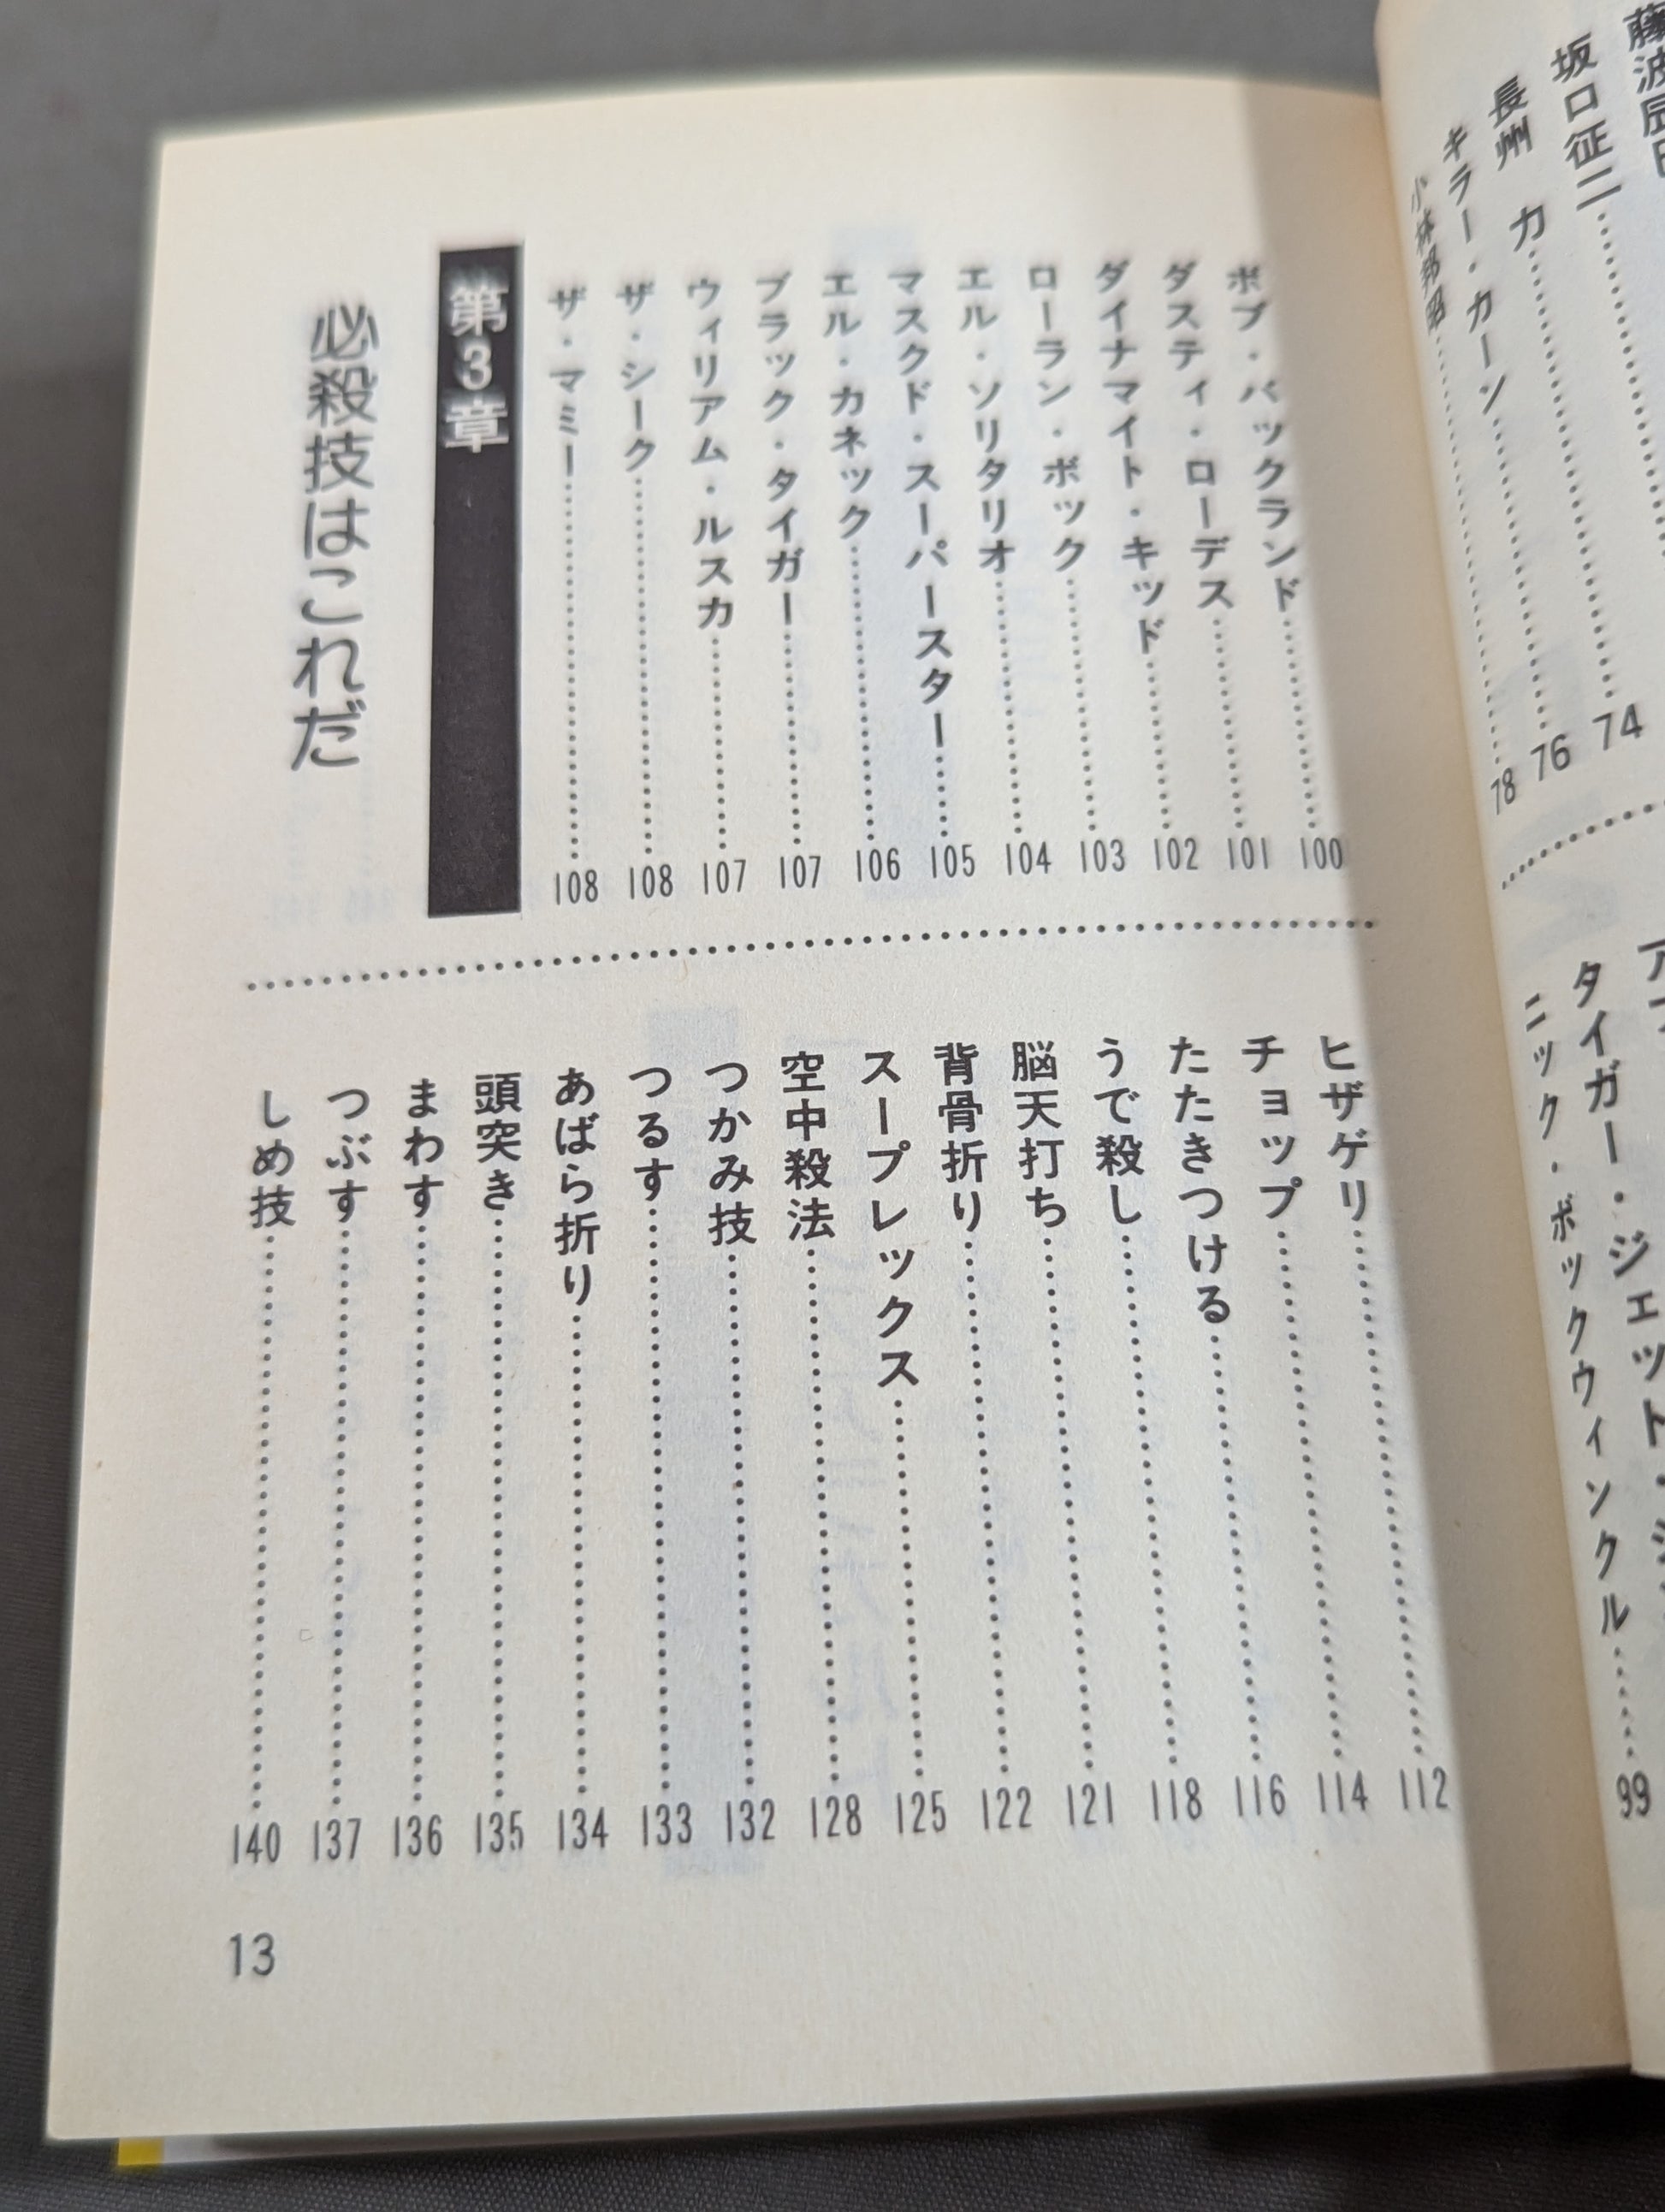 坂口征二……74
長州　力……76
キラー・カーン
小林邦昭……78
タイガー・ジェット・シ
ニック・ボックウィンクル……99
ボブ・バックランド……100
ダスティ・ローデス……101
ダイナマイト・キッド……102
ローラン・ボック……103
エル・ソリタリオ……104
マスクド・スーパースター……105
エル・カネック……106
ブラック・タイガー……107
ウィリアム・ルスカ……107
ザ・シーク……108
ザ・マミー……108
第3章
必殺技はこれだ
ヒザゲリ……112
チョップ……114
たたきつける……116
うで殺し……118
脳天打ち……121
背骨折り……122
スープレックス……125
空中殺法……128
つかみ技……132
つるす……133
あばら折り……134
頭突き……135
まわす……136
つぶす……137
しめ技……140
13